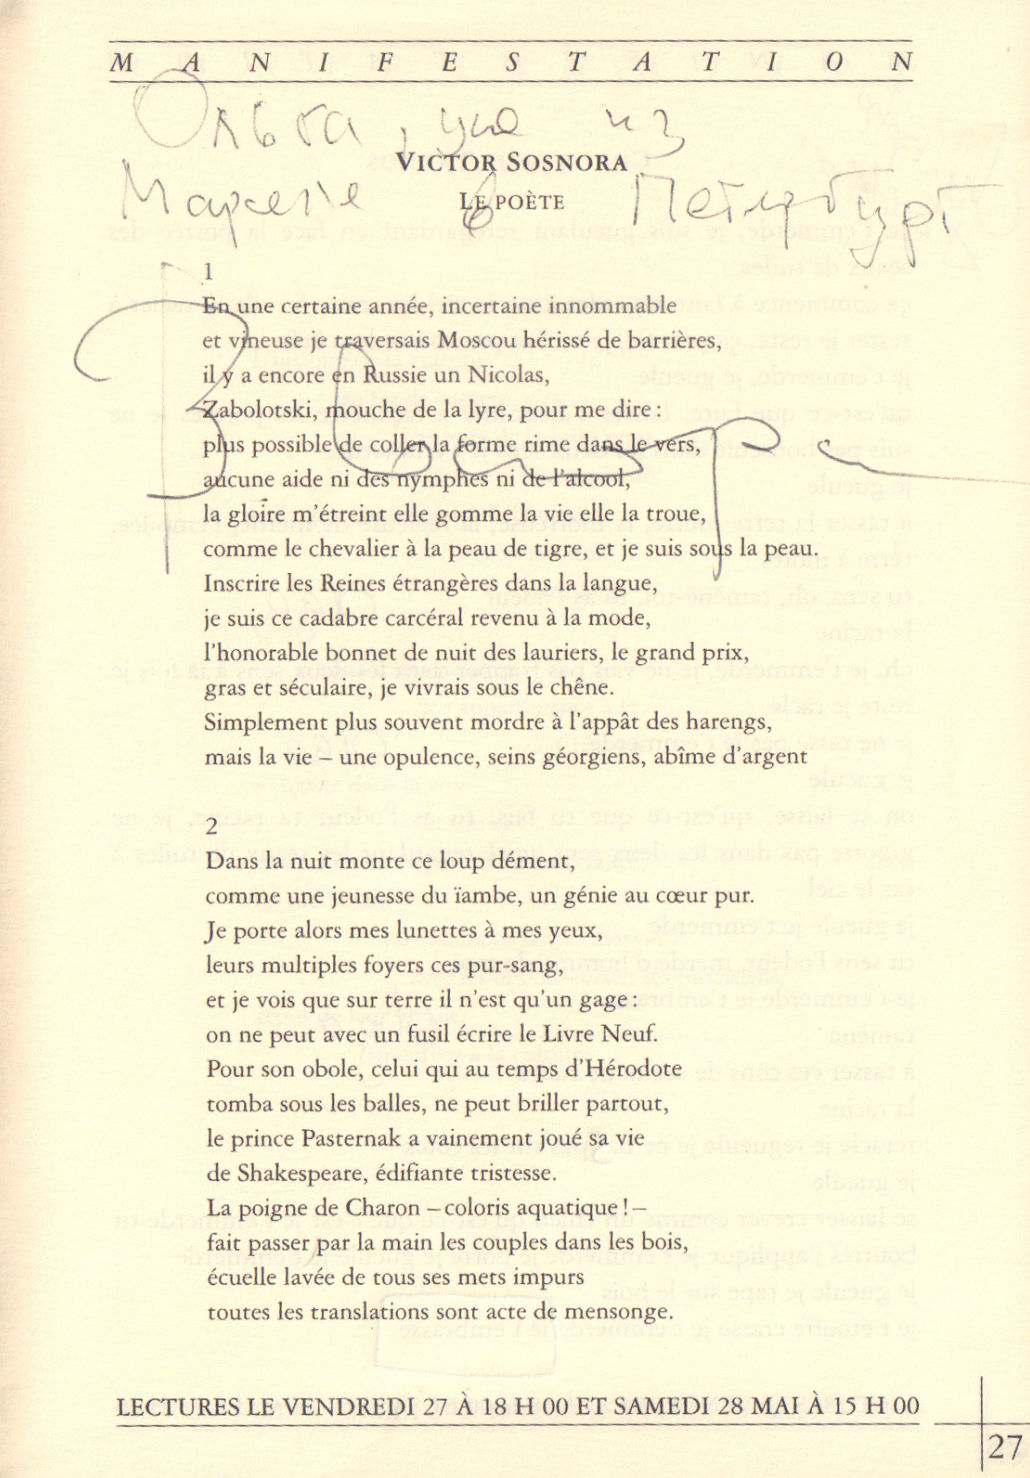 MANIFESTATION
Ольга, уже из
VICTOR SOSNORA
Марселе в Петербург
LE POÈTE
1
En une certaine année, incertaine innommable
et vineuse je traversais Moscou hérissé de barrières,
il y a encore en Russie un Nicolas,
Zabolotski, mouche de la lyre, pour me dire :
plus possible de coller la forme rime dans le vers,
aucune aide ni des nymphes ni de l'alcool,
la gloire m'étreint elle gomme la vie elle la troue,
comme le chevalier à la peau de tigre, et je suis sous la peau.
Inscrire les Reines étrangères dans la langue,
je suis ce cadabre carcéral revenu à la mode,
l'honorable bonnet de nuit des lauriers, le grand prix,
gras et séculaire, je vivrais sous le chêne.
Simplement plus souvent mordre à l'appât des harengs,
mais la vie – une opulence, seins géorgiens, abîme d'argent
2
Dans la nuit monte ce loup dément,
comme une jeunesse du ïambe, un génie au cœur pur.
Je porte alors mes lunettes à mes yeux,
leurs multiples foyers ces pur-sang,
et je vois que sur terre il n'est qu'un gage :
on ne peut avec un fusil écrire le Livre Neuf.
Pour son obole, celui qui au temps d'Hérodote
tomba sous les balles, ne peut briller partout,
le prince Pasternak a vainement joué sa vie
de Shakespeare, édifiante tristesse.
La poigne de Charon – coloris aquatique ! –
fait passer par la main les couples dans les bois,
écuelle lavée de tous ses mets impurs
toutes les translations sont acte de mensonge.
LECTURES LE VENDREDI 27 À 18 H 00 ET SAMEDI 28 MAI À 15 H 00
27